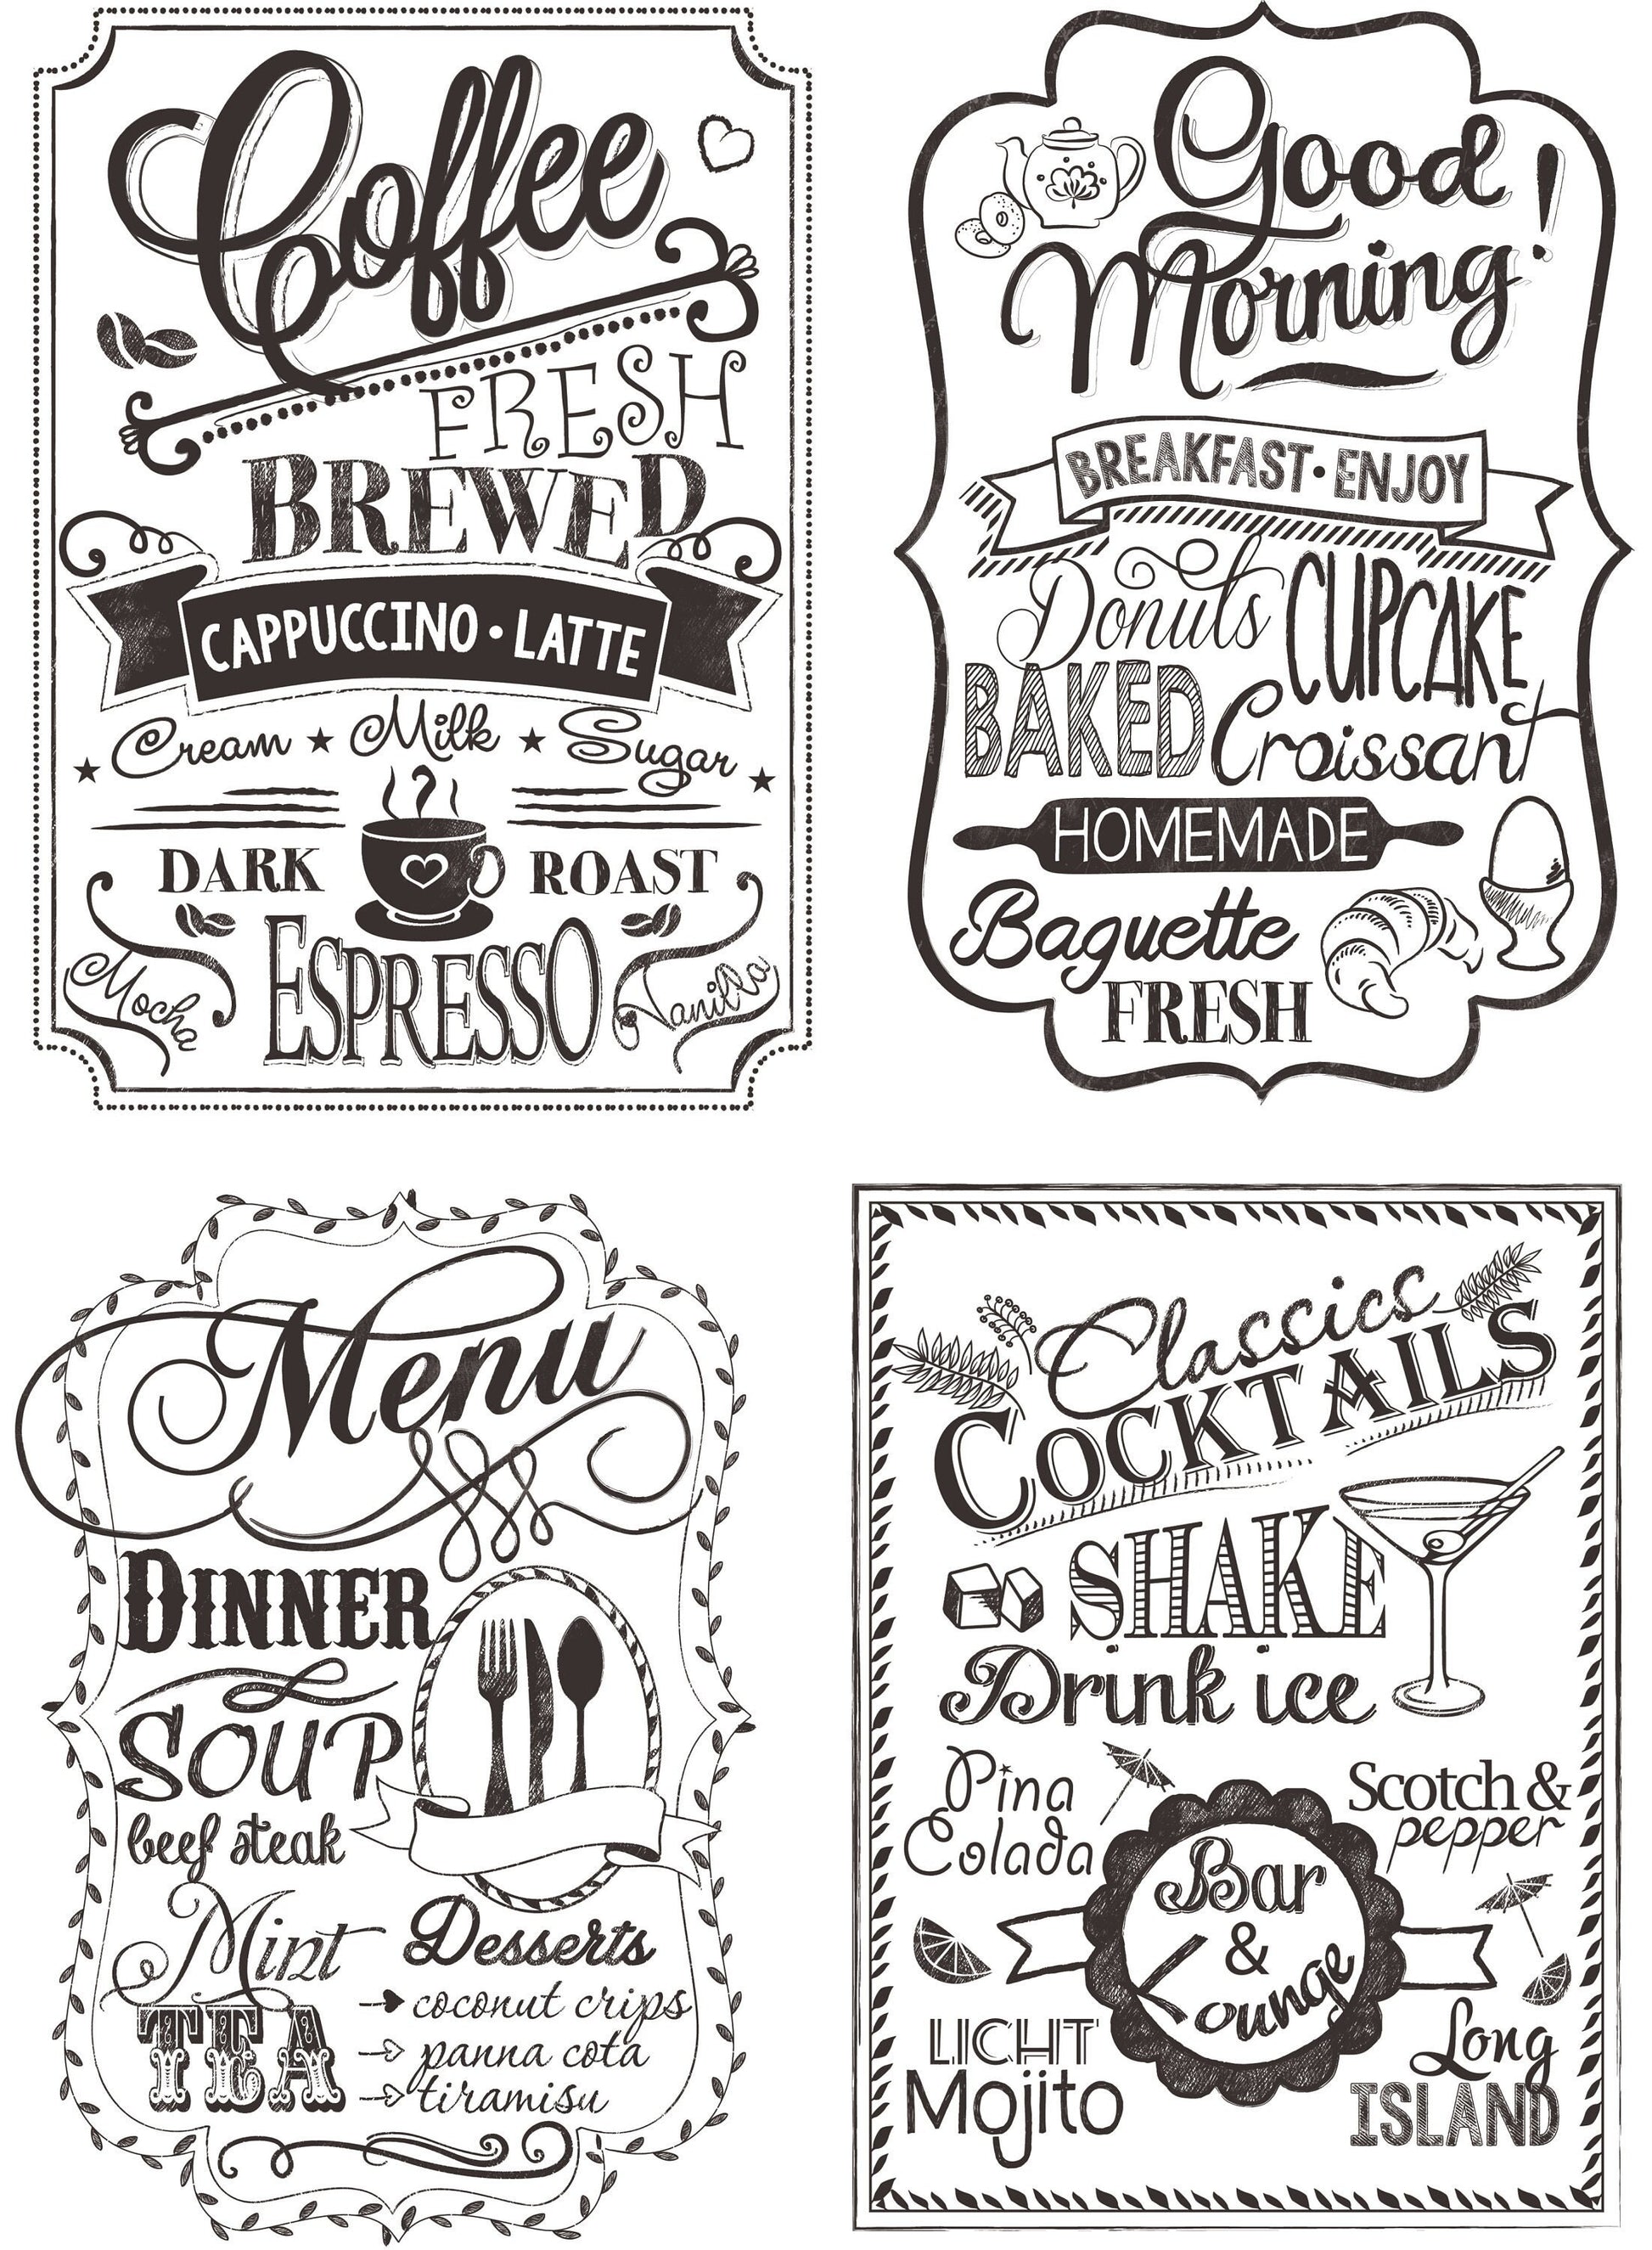 Coffee
FRESH
BREWED
CAPPUCCINO • LATTE
Cream ★ Milk ★ Sugar
DARK ROAST
ESPRESSO
Mocha
Vanilla
Good
Morning!
BREAKFAST • ENJOY
Donuts CUPCAKE
BAKED Croissant
HOMEMADE
Baguette
FRESH
Menu
DINNER
SOUP
beef steak
Mint
TEA
Desserts
coconut crips
panna cota
tiramisu
Classics
COCKTAILS
SHAKE
Drink ice
Pina
Colada
Scotch &
pepper
Bar
&
Lounge
LICHT
Mojito
Long
ISLAND